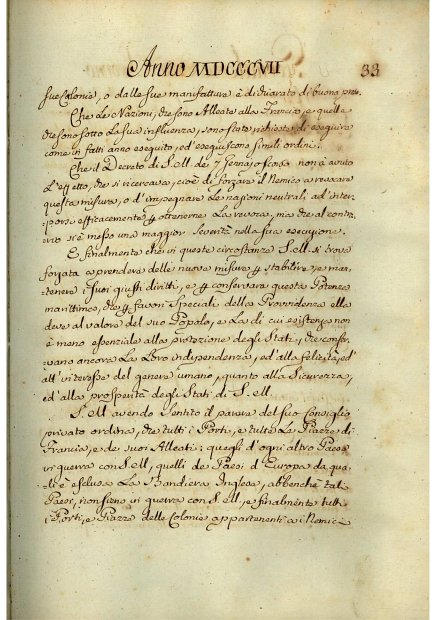 Anno MDCCCVII
33
sue Colonie, o dalle sue manifatture è dichiarato di buona pre:
Che le Nazioni, che sono Alleate alla Francia, e quelle
che sono sotto la sua influenza, sono state richieste di eseguire
come in fatti anno eseguito, ed' eseguiscono simili ordini.
Che il Decreto di S. M. de 7 Gennajo scorso non à avuto
l'effetto, che si ricercava, cioè di forzare il Nemico a revocare
queste misure, o d'impegnare le nazioni neutrali ad inter-
porsi efficacemente p ottenerne la revoca, ma che al contra
rio si è messo una maggior severità nella sua esecuzione.
E finalmente che in queste circostanze S. M. si trova
forzata a prendere delle nuove misure p stabilire, e man-
tenere i suoi giusti diritti, e p conservare questa Potenza
marittima, che p favori speciali della Providenza ella
deve al valore del suo Popolo, e la di cui esistenza non
è meno essenziale alla protezione degli Stati, che conser-
vano ancora la loro indipendenza, ed' alla felicità, ed'
all' interesse del genere umano, quanto alla sicurezza,
ed' alla prosperità degli Stati di S. M.
S. M. avendo sentito il parere del suo Consiglio
privato ordina, che tutti i Porti, e tutte le Piazze di
Francia, e de suoi Alleati: quegli d'ogni altro Paese
in guerra con S. M., quelli de Paesi d'Europa da qua-
li è esclusa la Bandiera Inglese, abbenchè tali
Paesi, non sieno in guerra con S. M., e finalmente tutti
i Porti, e Piazze delle Colonie appartenenti ai Nemici